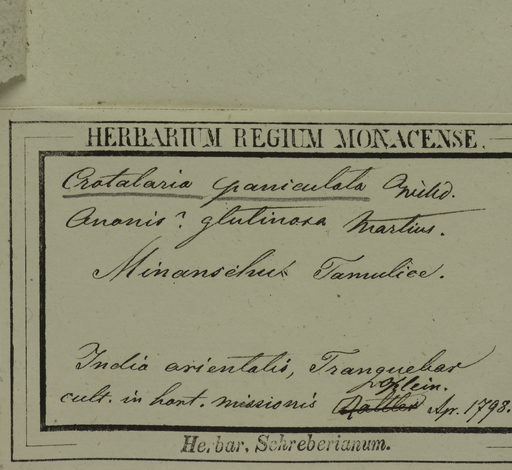 HERBARIUM REGIUM MONACENSE.
Crotalaria paniculata Willd.
Anonis? glutinosa Martius.
Minanschut Tamulice.
India orientalis, Tranquebar
Klein.
cult. in hort. missionis Rottler Apr. 1798.
Herbar. Schreberianum.